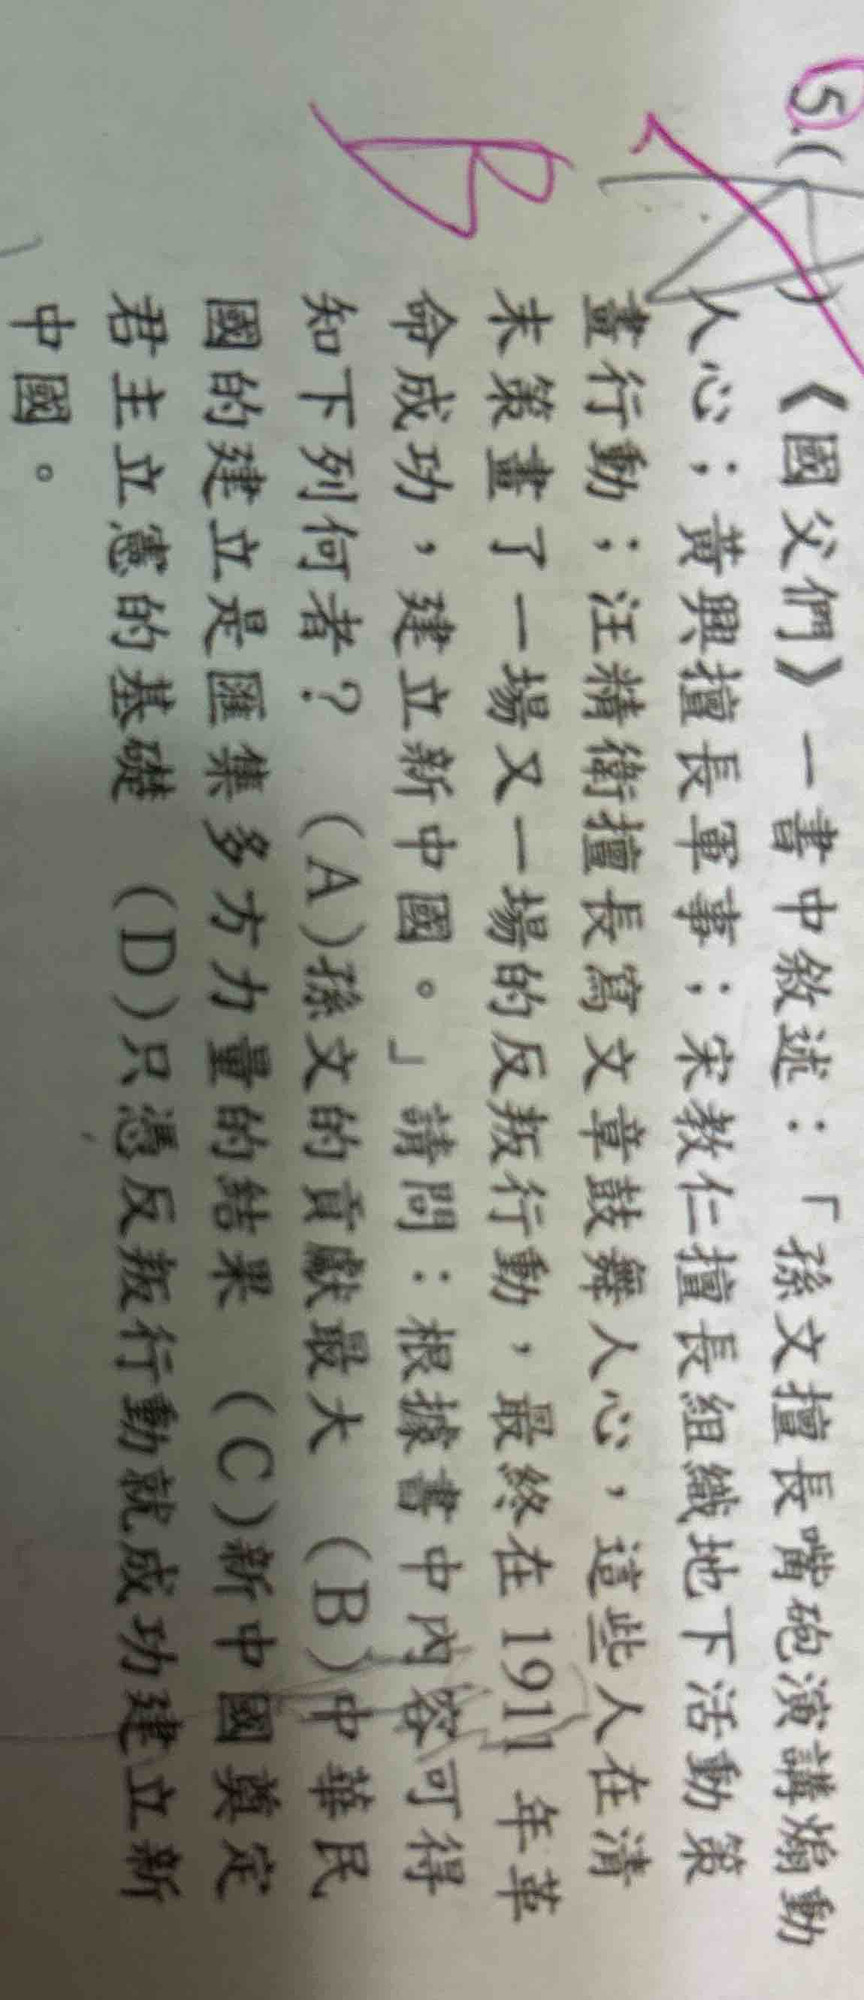 5.(A)《國父們》一書中敘述：「孫文擅長嘴砲演講煽動
人心；黃興擅長軍事；宋教仁擅長組織地下活動策
畫行動；汪精衛擅長寫文章鼓舞人心，這些人在清
末策畫了一場又一場的反叛行動，最終在 1911 年革
命成功，建立新中國。」請問：根據書中內容可得
知下列何者？ (A)孫文的貢獻最大 (B)中華民
國的建立是匯集多方力量的結果 (C)新中國奠定
君主立憲的基礎 (D)只憑反叛行動就成功建立新
中國。
B